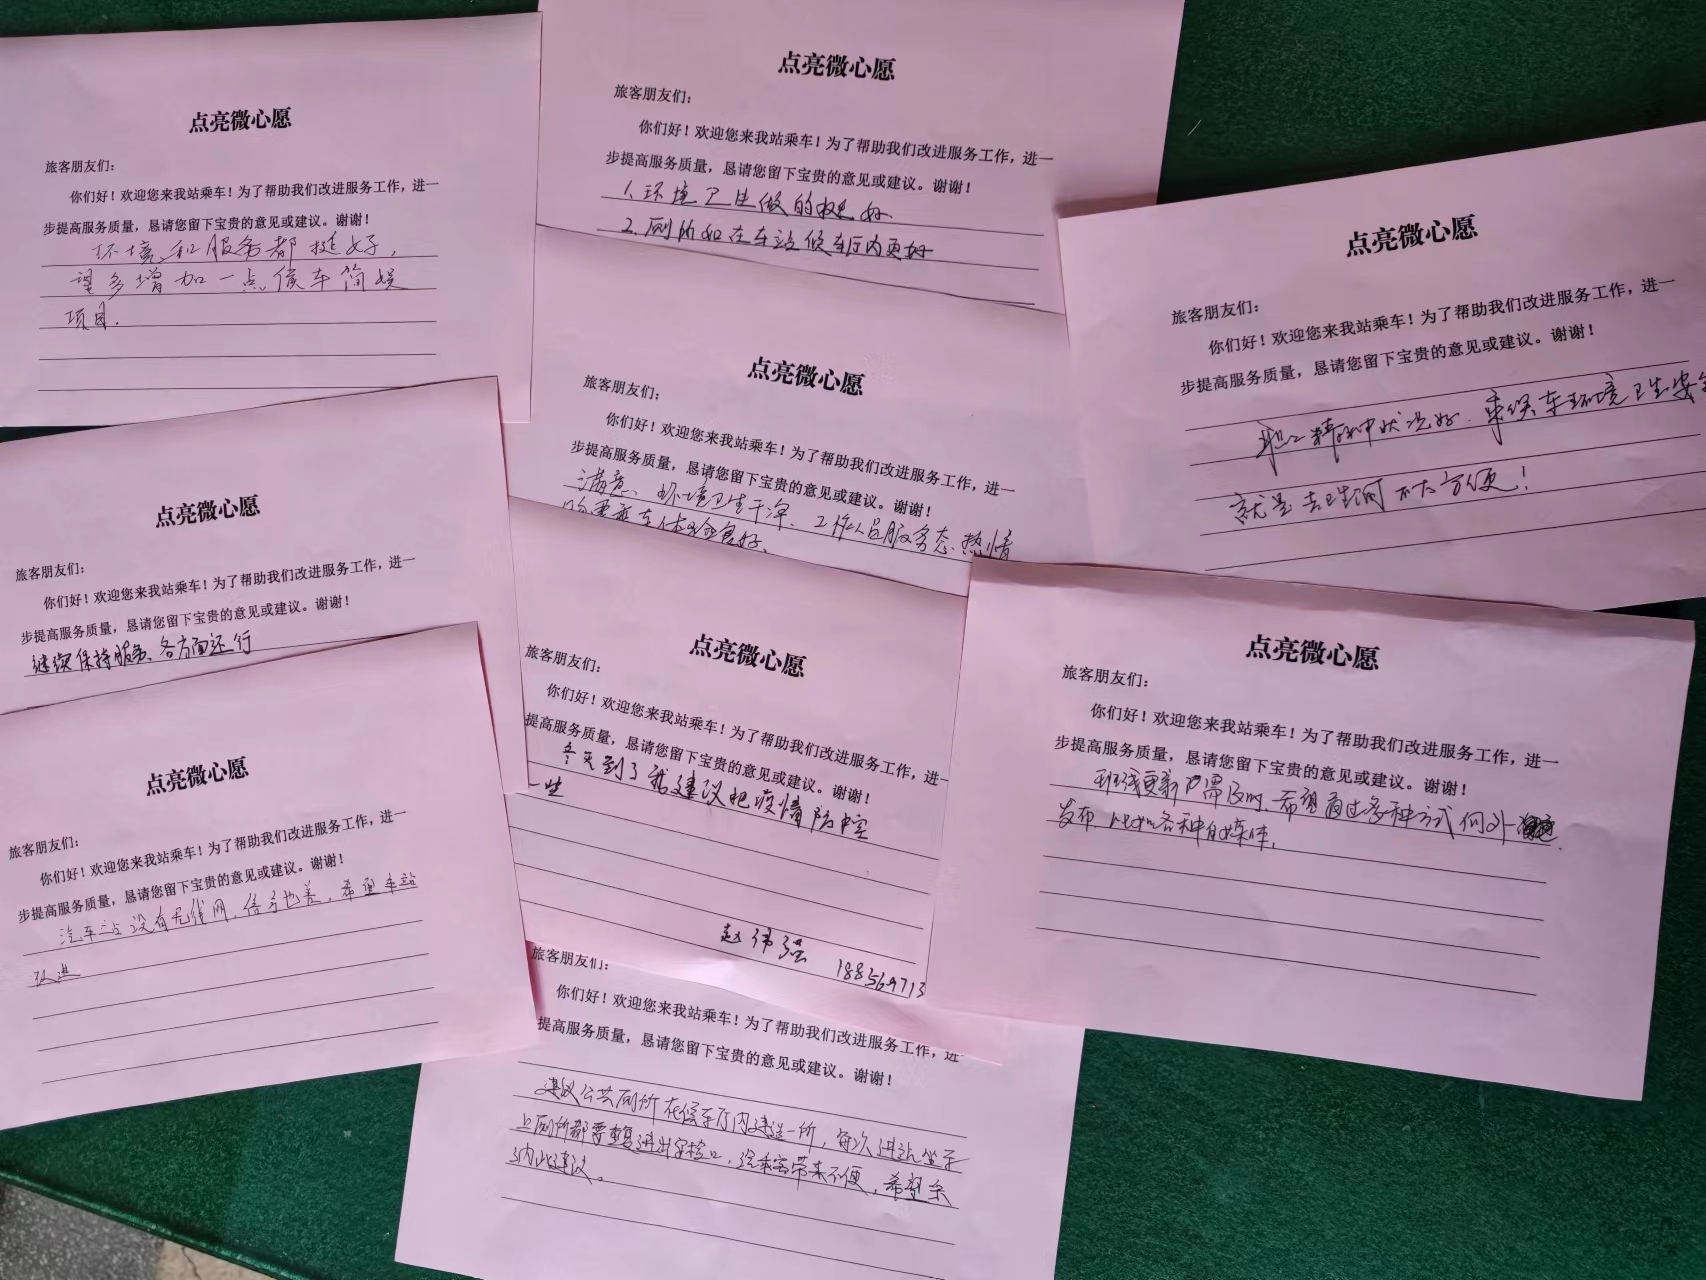 点亮微心愿
旅客朋友们：
你们好！欢迎您来我站乘车！为了帮助我们改进服务工作，进一
步提高服务质量，恳请您留下宝贵的意见或建议。谢谢！
环境和服务都挺好，
望多增加一点候车简娱
项目.
点亮微心愿
旅客朋友们：
你们好！欢迎您来我站乘车！为了帮助我们改进服务工作，进一
步提高服务质量，恳请您留下宝贵的意见或建议。谢谢！
1、环境卫生做的挺好.
2、厕所如在车站候车厅内更好
点亮微心愿
旅客朋友们：
你们好！欢迎您来我站乘车！为了帮助我们改进服务工作，进一
步提高服务质量，恳请您留下宝贵的意见或建议。谢谢！
职工精神状况好. 乘候车环境卫生安全
就是去卫生间不太方便！
点亮微心愿
旅客朋友们：
你们好！欢迎您来我站乘车！为了帮助我们改进服务工作，进一
步提高服务质量，恳请您留下宝贵的意见或建议。谢谢！
满意、环境卫生干净、工作人员服务态热情
乘车体验良好、
点亮微心愿
旅客朋友们：
你们好！欢迎您来我站乘车！为了帮助我们改进服务工作，进一
步提高服务质量，恳请您留下宝贵的意见或建议。谢谢！
继续保持服务、各方面还行
点亮微心愿
旅客朋友们：
你们好！欢迎您来我站乘车！为了帮助我们改进服务工作，进一
提高服务质量，恳请您留下宝贵的意见或建议。谢谢！
冬天到了我建议把疫情防控
一些
赵伟强 188569713
点亮微心愿
旅客朋友们：
你们好！欢迎您来我站乘车！为了帮助我们改进服务工作，进一
步提高服务质量，恳请您留下宝贵的意见或建议。谢谢！
班线更新户需及时，希望通过多种方式向外
发布，比如各种自媒体，
点亮微心愿
旅客朋友们：
你们好！欢迎您来我站乘车！为了帮助我们改进服务工作，进一
步提高服务质量，恳请您留下宝贵的意见或建议。谢谢！
汽车站没有无线网，信号也差，希望车站
改进
旅客朋友们：
你们好！欢迎您来我站乘车！为了帮助我们改进服务工作，进一
提高服务质量，恳请您留下宝贵的意见或建议。谢谢！
建议公共厕所在候车厅内建造一所，每次进站坐车
上厕所都要重复进出安检口，给乘客带来不便，希望采
纳此建议。